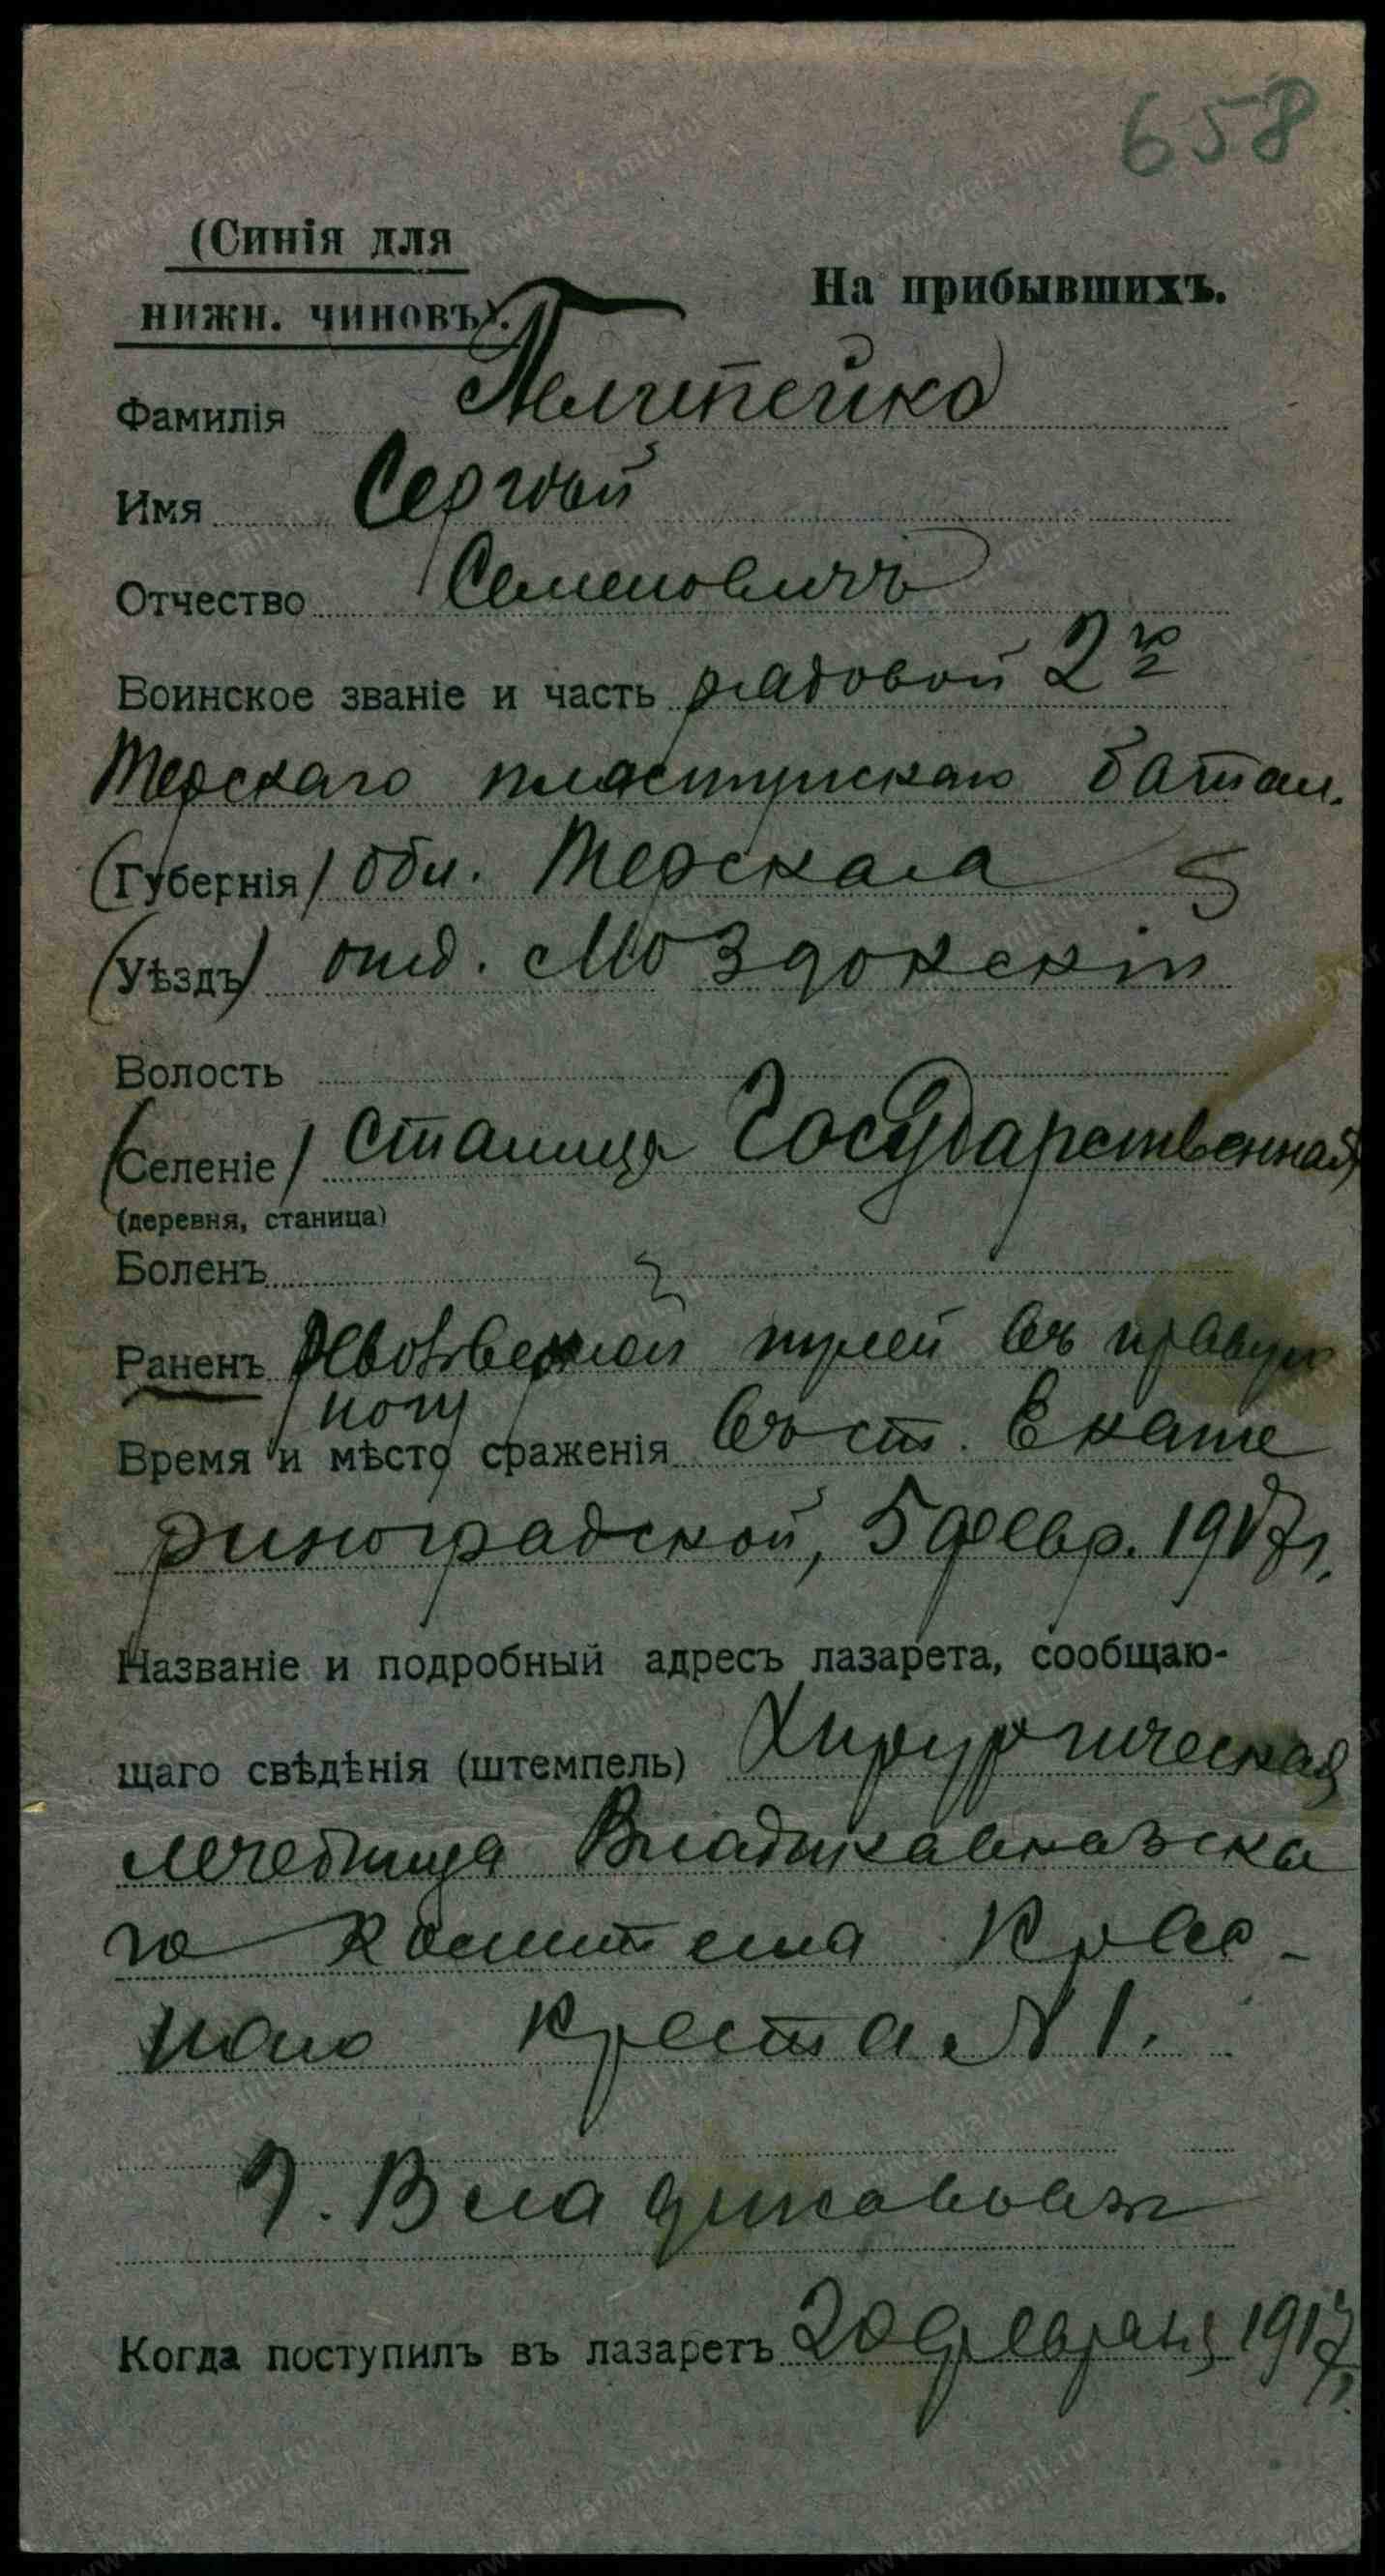 658
(Синія для
нижн. чиновъ).
На прибывшихъ.
Фамилія
Имя Сергѣй
Отчество Семеновичъ
Воинское званіе и часть рядовой 2го
Терскаго пластунскаго батал.
(Губернія) обл. Терская
(Уѣздъ) отд. Моздокскій
Волость
(Селеніе) станица Государственная
(деревня, станица)
Боленъ
Раненъ револьверной пулей въ правую
ногу
Время и мѣсто сраженія въ ст. Екате
риноградской, 5 февр. 1917 г.
Названіе и подробный адресъ лазарета, сообщаю-
щаго свѣдѣнія (штемпель) Хирургическая
лечебница Владикавказска
го Комитета Крас-
наго Креста № 1.
г. Владикавказ
Когда поступилъ въ лазаретъ 20 февраля 1917 г.